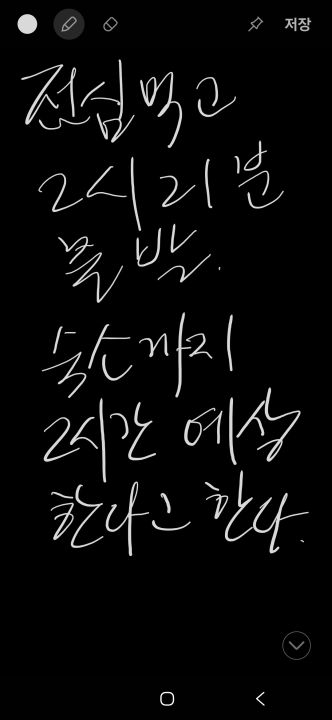 저장
점심먹고
2시 21분
출발.
숙소까지
2시간 예상
한다고 한다.